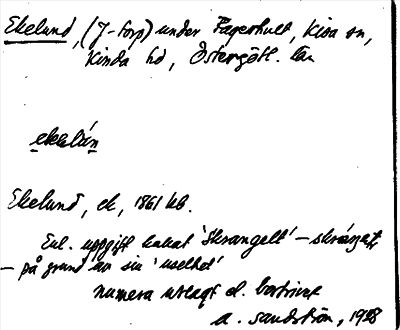 Ekelund, (J-torp) under Fagerhult, Kisa sn,
Kinda hd, Östergötl. län
ekelún
Ekelund, ek, 1861 kb.
Enl. uppgift kallat 'Skrangelt' –
– på grund av sin 'uselhet'
numera utlagt el. bortrivet
A. Sandström, 1928